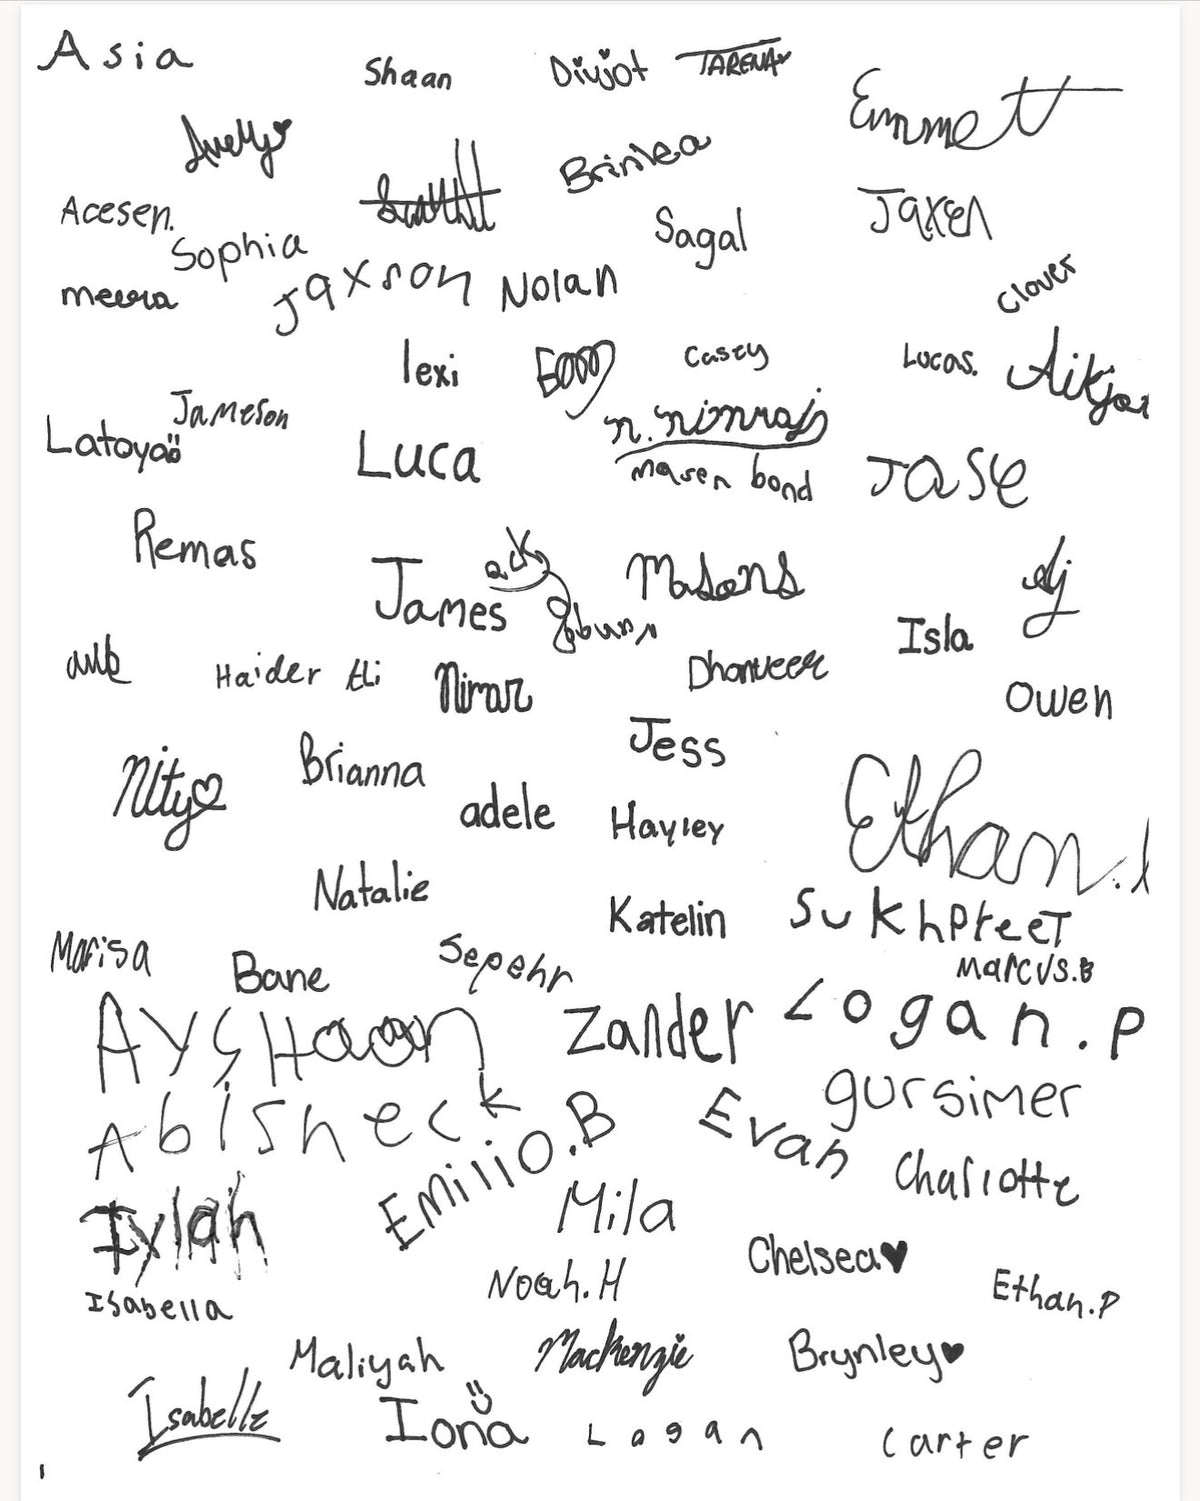 Asia
Shaan
Divjot
TARENA
Emmett
Avery
Brinlea
Acesen.
Sagal
Jaxen
Sophia
meera
Jaxson
Nolan
Clover
lexi
Casey
Lucas.
Jameson
n. nimraj
Latoya
Luca
masen bond
Jase
Remas
James
Masons
dj
Isla
Haider Ali
Nimar
Dhanveer
Owen
Jess
Nity
Brianna
adele
Hayley
Ethan.
Natalie
Katelin
Sukhpreet
Marisa
Bane
Sepehr
Marcus.B
AySHaan
Zander
Logan.P
Abisheck
gursimer
Evan
Emilio.B
Charlotte
Iylah
Mila
Chelsea♥
Noah.H
Ethan.P
Isabella
Maliyah
Mackenzie
Brynley♥
Isabelle
Iona
Logan
Carter